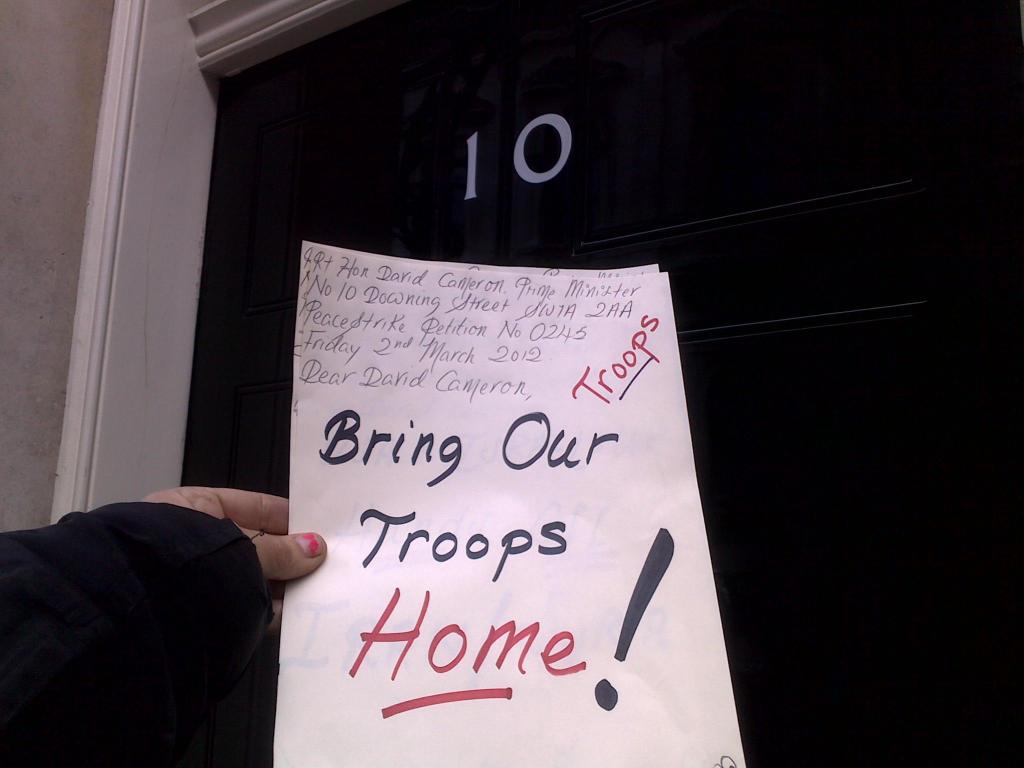 10
Rt Hon David Cameron. Prime Minister
No 10 Downing Street SW1A 2AA
PeaceStrike Petition No 0245
Friday 2nd March 2012
Dear David Cameron,
Troops
Bring Our
Troops
Home!